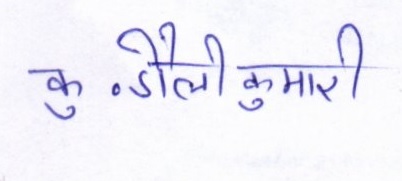 कु. डौली कुमारी